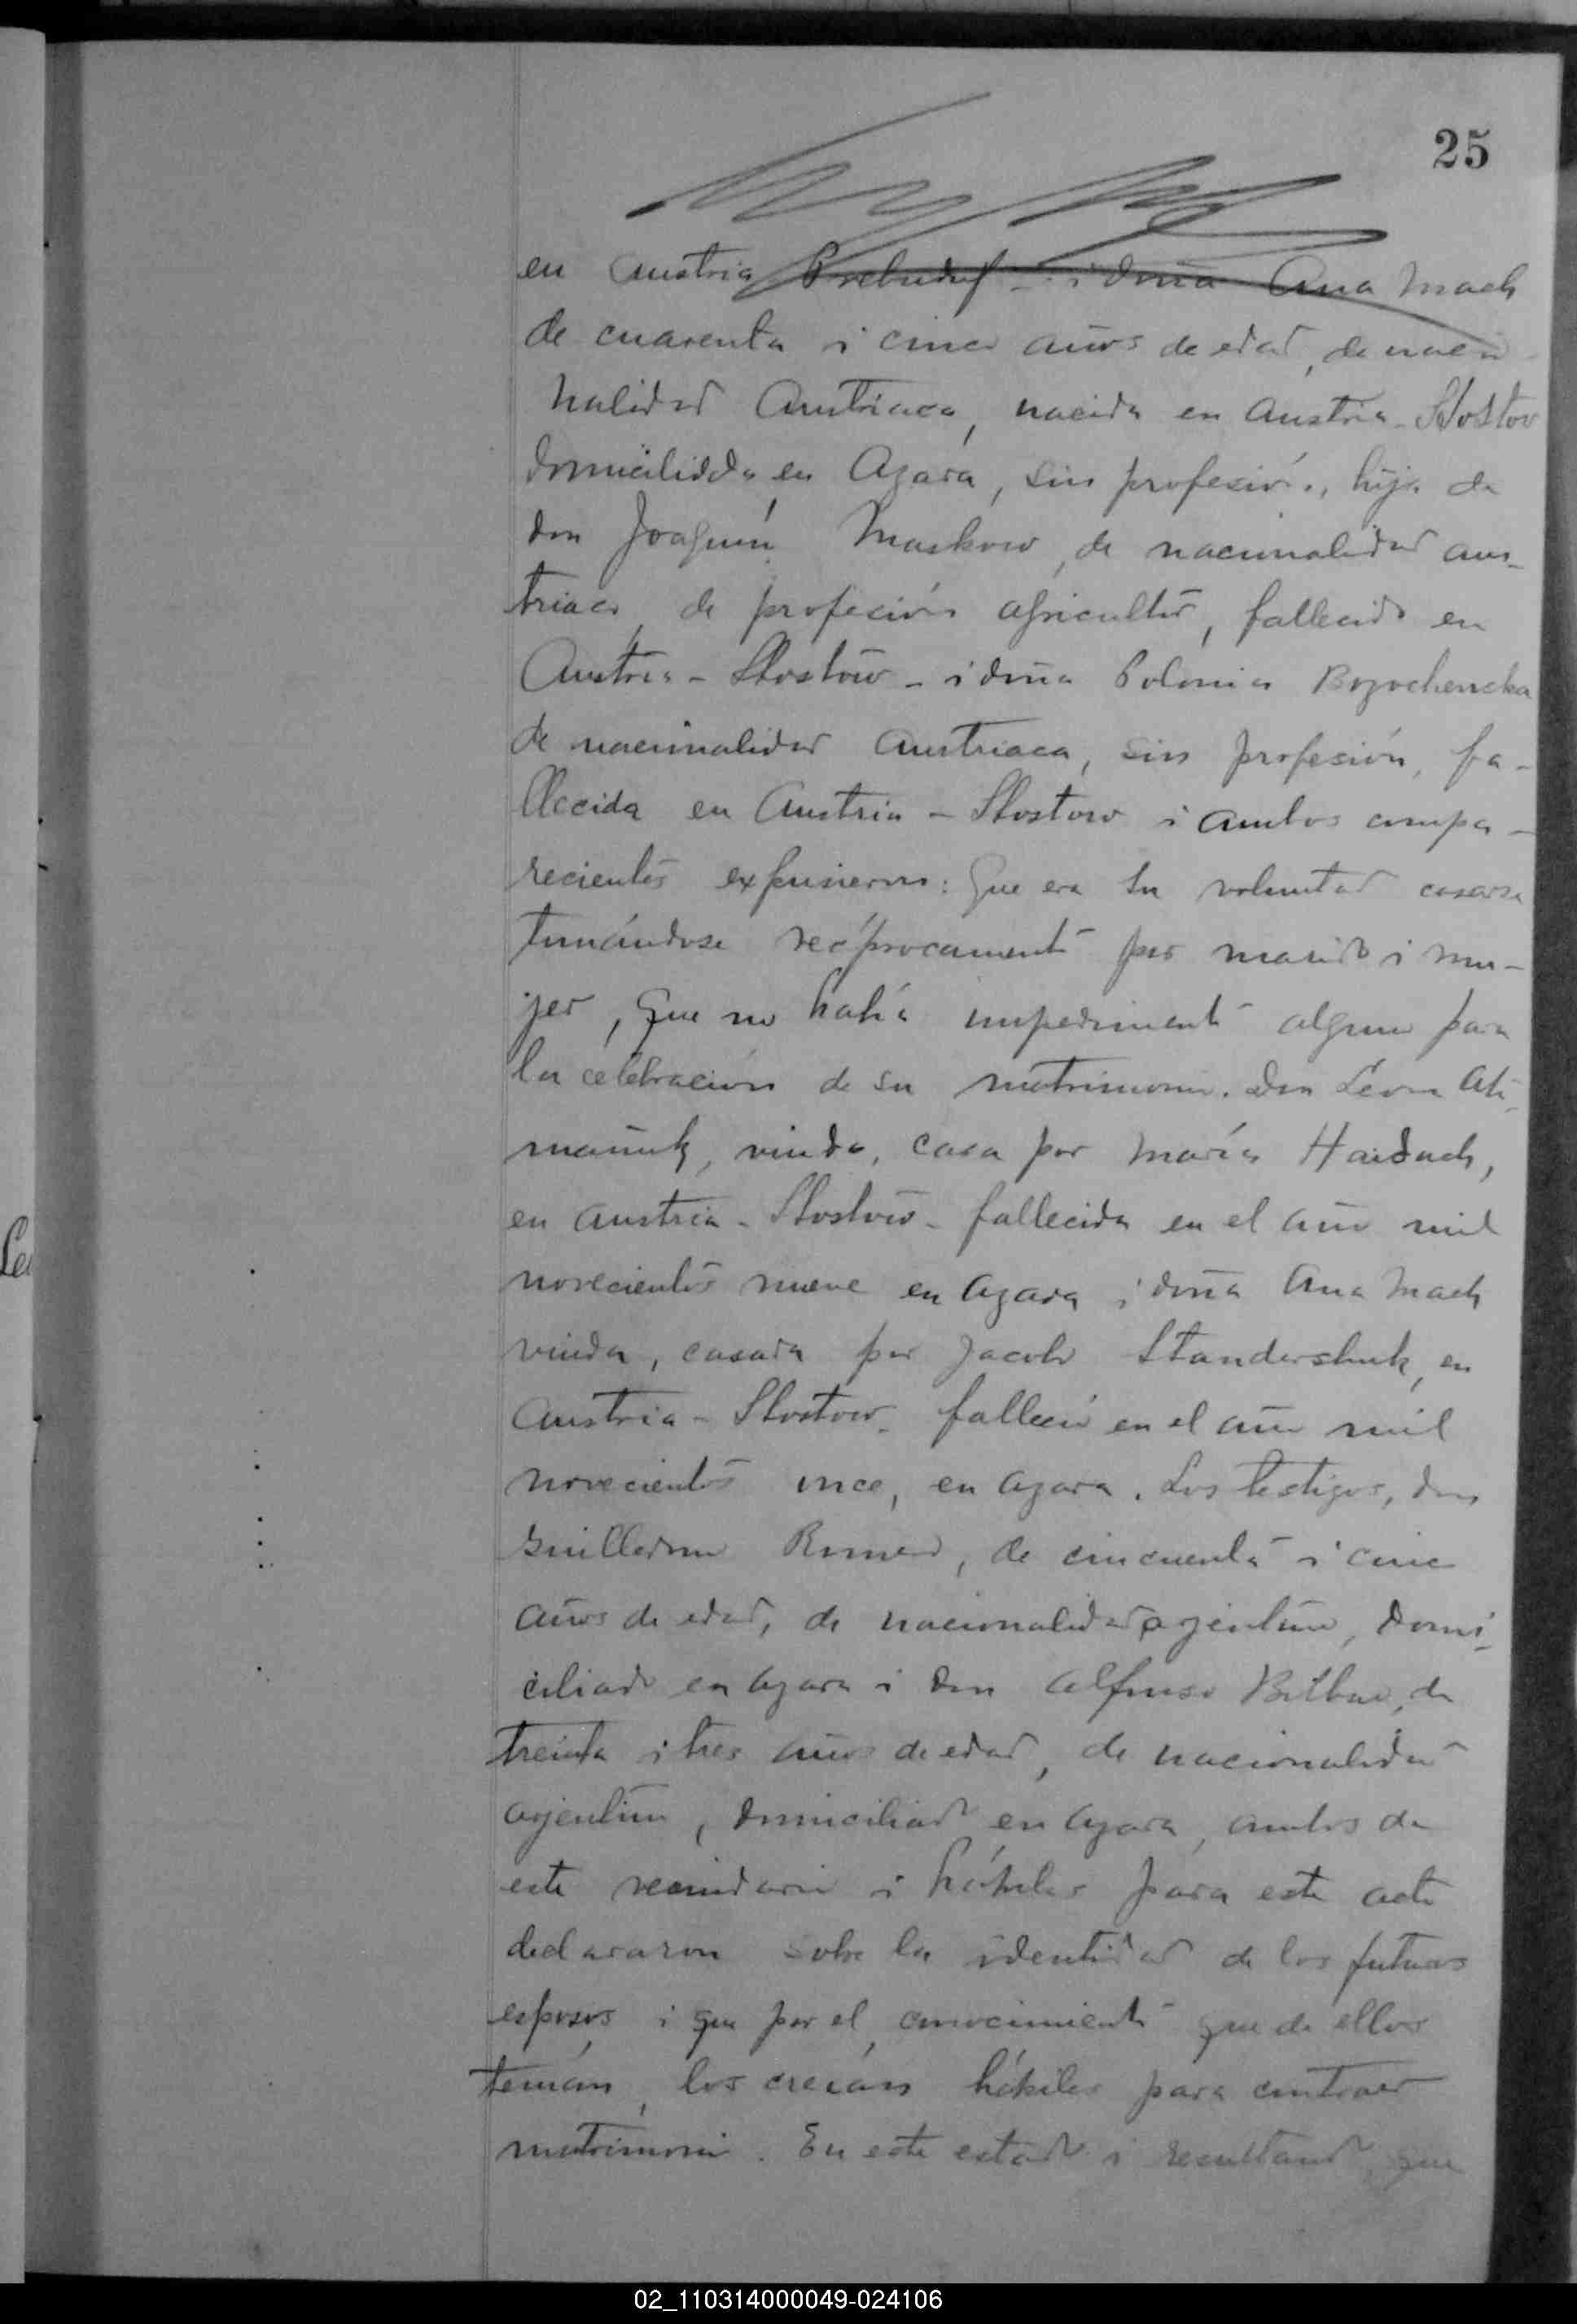 25
en Austria i doña Ana Mach
de cuarenta i cinco años de edad, de nacio
nalidad Austriaca, nacida en Austria - Skostow
domiciliada en Azara, sin profesión, hija de
don Joaquín Maskow, de nacionalidad aus-
triaco, de profeción agricultor, fallecido en
Austria - Skostow - i doña Polonia
de nacionalidad Austriaca, sin profesión, fa-
llecida en Austria - Skostow i ambos compa-
recientes expusieron: Que era su voluntad casarse
tomándose recíprocamente por marido i mu-
jer, que no había impedimento alguno para
la celebración de su matrimonio. Don León
viudo, casa por María Haiduch,
en Austria - Skostow - fallecida en el año mil
novecientos nueve en Azara i doña Ana Mach
viuda, casada por Jacobo Standershuk, en
Austria - Skostow - falleció en el año mil
novecientos once, en Azara. Los testigos, don
Guillermo Romero, de cincuenta i cinco
años de edad, de nacionalidad arjentino, domi-
ciliado en Azara i don Alfonso Bilbao, de
treinta i tres años de edad, de nacionalidad
arjentino, domiciliado en Azara, ambos de
este vecindario i hábiles para este acto
declararon sobre la identidad de los futuros
esposos i que por el conocimiento que de ellos
tenían, los creían hábiles para contraer
matrimonio. En este estado i resultando que
02_110314000049-024106